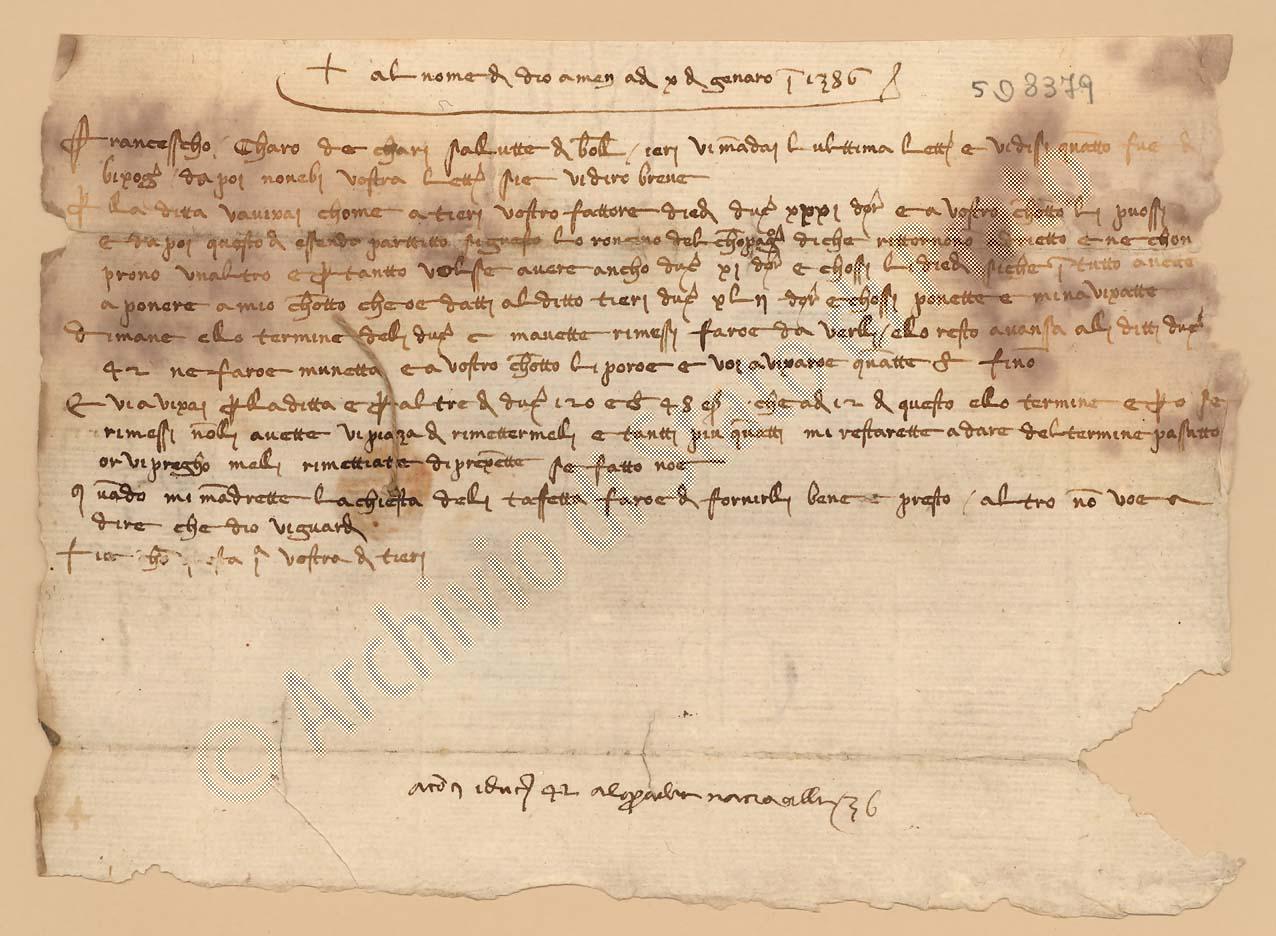 + al nome d dio amen ad x d genaro 1386
508379
Francesscho Charo de chari salutte d boll / ieri vi mādai l ulttima letta e vidisi quātto fue d
bixog / da poi nonebi vostra letta sie vidiro breve
P lla ditta vavixai chome a tieri vostro fattore died duc xxxi dor e a vostro chōtto li puossi
e da poi questo d essendo parttito lo roncino del diche rittornono adrietto e ne chon
prono unaltro e p tantto volsse avere ancho duc xi dor e chossi li died siche ī tutto avette
a ponere a mio chōtto che oe datti al ditto tieri duc xlii dor e chossi ponette e minavixatte
dimane ello termine deli duc e mavette rimessi faroe da verlli / ello resto avansa ali ditti duc
42 ne faroe munetta e a vostro chōtto li poroe e voi avixaroe quātte fino
E vi avixai p lla ditta e p altre d duc 120 e 48 che ad 12 d questo ello termine e p o se
rimessi nōlli avette vi piaza d rimettermeli e tantti piu quātti mi restarette a dare del termine passatto
or vi pregho melli rimettiate di prexētte se fatto noe
quādo mi mādrette la chiesta deli taffetta faroe d fornirlli bene e presto / altro nō voe a
dire che dio vi guard
+ ī vostra d tieri
42 36
© Archivio di Stato di Prato